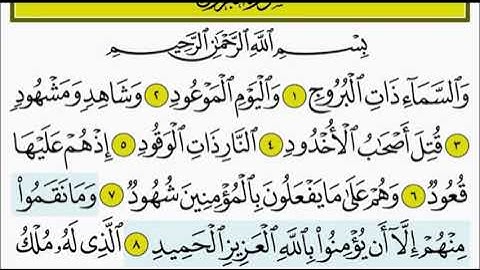 بِسْمِ اللَّهِ الرَّحْمَٰنِ الرَّحِيمِ
وَالسَّمَاءِ ذَاتِ الْبُرُوجِ ١ وَالْيَوْمِ الْمَوْعُودِ ٢ وَشَاهِدٍ وَمَشْهُودٍ
٣ قُتِلَ أَصْحَابُ الْأُخْدُودِ ٤ النَّارِ ذَاتِ الْوَقُودِ ٥ إِذْ هُمْ عَلَيْهَا
قُعُودٌ ٦ وَهُمْ عَلَىٰ مَا يَفْعَلُونَ بِالْمُؤْمِنِينَ شُهُودٌ ٧ وَمَا نَقَمُوا
مِنْهُمْ إِلَّا أَن يُؤْمِنُوا بِاللَّهِ الْعَزِيزِ الْحَمِيدِ ٨ الَّذِي لَهُ مُلْكُ